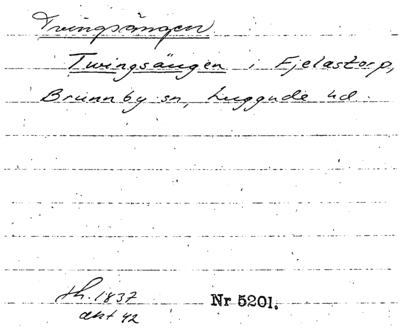 Tvingsängen
Twingsängen i Fjelastorp,
Brunnby sn, Luggude hd.
th. 1837
akt 42
Nr 5201.